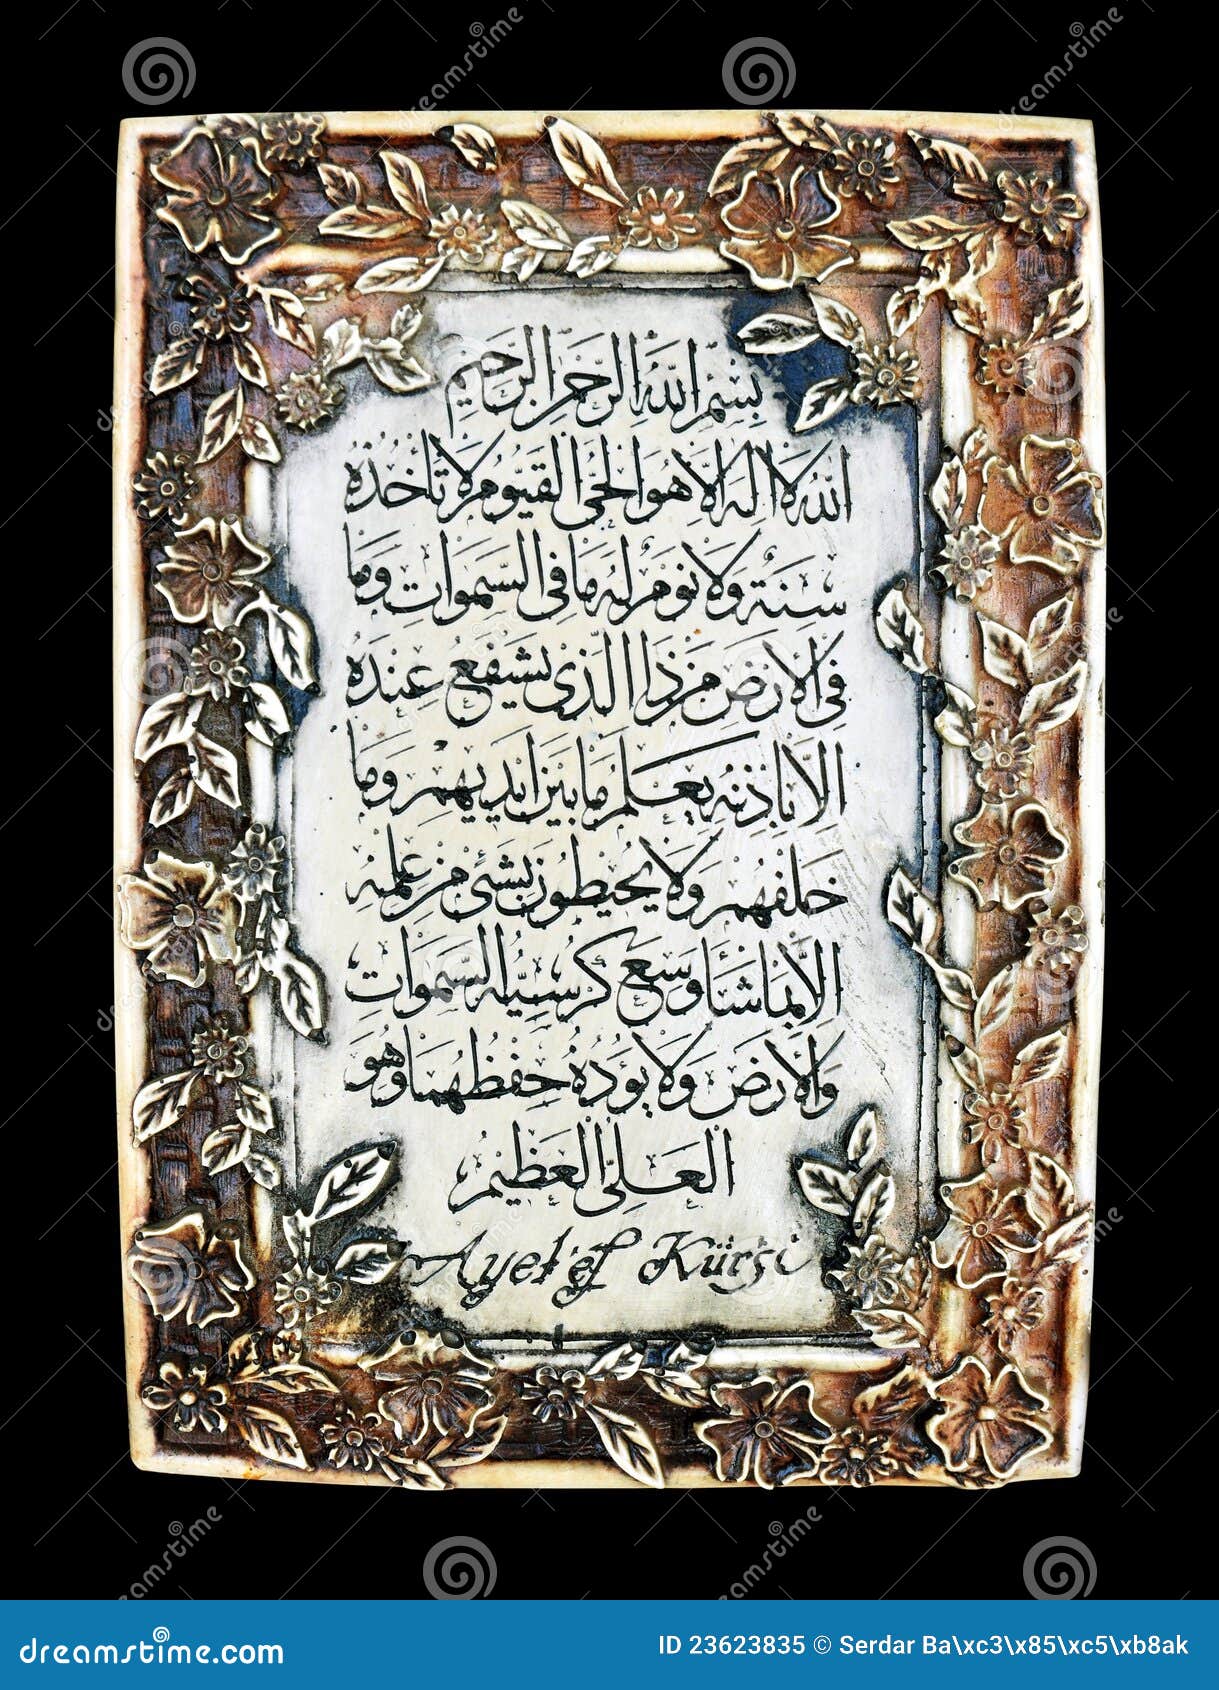 بِسْمِ اللّٰهِ الرَّحْمٰنِ الرَّحِيمِ
اَللّٰهُ لَا اِلٰهَ اِلَّا هُوَ الْحَيُّ الْقَيُّومُ لَا تَأْخُذُهُ
سِنَةٌ وَلَا نَوْمٌ لَهُ مَا فِي السَّمٰوَاتِ وَمَا
فِي الْاَرْضِ مَنْ ذَا الَّذِي يَشْفَعُ عِنْدَهُ
اِلَّا بِاِذْنِهِ يَعْلَمُ مَا بَيْنَ اَيْدِيهِمْ وَمَا
خَلْفَهُمْ وَلَا يُحِيطُونَ بِشَيْءٍ مِنْ عِلْمِهِ
اِلَّا بِمَا شَاءَ وَسِعَ كُرْسِيُّهُ السَّمٰوَاتِ
وَالْاَرْضَ وَلَا يَؤُدُهُ حِفْظُهُمَا وَهُوَ
الْعَلِيُّ الْعَظِيمُ
Ayet'el Kürsi
dreamstime.com
ID 23623835 © Serdar Ba\xc3\x85\xc5\xb8ak